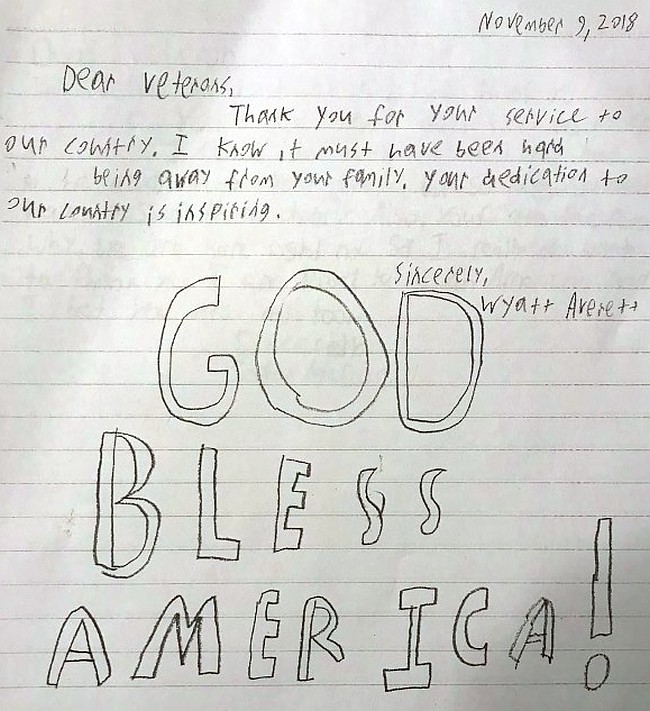 November 9, 2018
Dear Veterans,
Thank you for your service to
our country. I know it must have been hard
being away from your family. your dedication to
our country is inspiring.
Sincerely,
Wyatt Averett
GOD
BLESS
AMERICA!